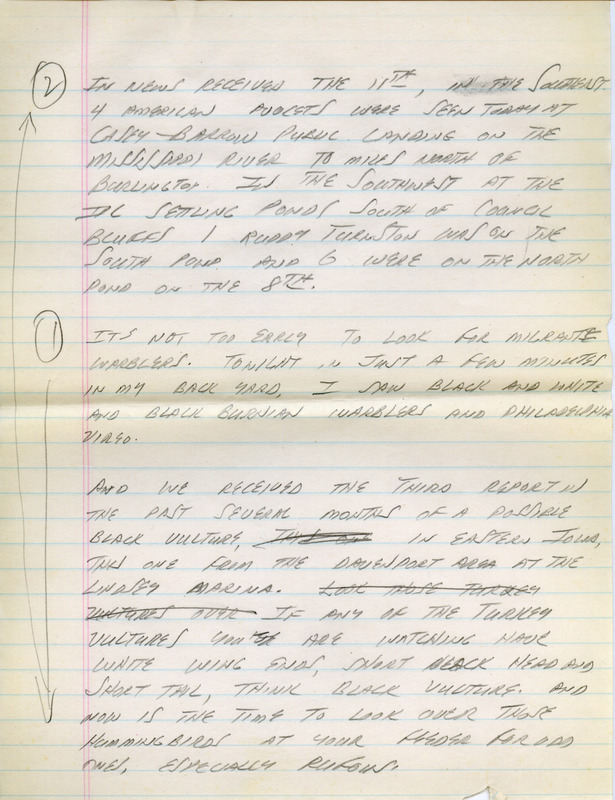 ②
IN NEWS RECEIVED THE 11TH, IN THE SOUTHEAST
4 AMERICAN AVOCETS WERE SEEN TODAY AT
CASEY BARROW PUBLIC LANDING ON THE
MISSISSIPPI RIVER 10 MILES NORTH OF
BURLINGTON. IN THE SOUTHWEST AT THE
IPL SETLING PONDS SOUTH OF COUNCIL
BLUFFS 1 RUDDY TURNSTON WAS ON THE
SOUTH POND AND 6 WERE ON THE NORTH
POND ON THE 8TH.
①
ITS NOT TOO EARLY TO LOOK FOR MIGRANT
WARBLERS. TONIGHT IN JUST A FEW MINUTES
IN MY BACK YARD, I SAW BLACK AND WHITE
AND BLACK BURNIAN WARBLERS AND PHILADELPHIA
VIREO.
AND WE RECEIVED THE THIRD REPORT IN
THE PAST SEVERAL MONTHS OF A POSSIBLE
BLACK VULTURE, THIS ONE IN EASTERN IOWA,
THIS ONE FROM THE DAVENPORT AREA AT THE
LINDSEY MARINA. LOOK THOSE TURKEY
VULTURES OVER IF ANY OF THE TURKEY
VULTURES YOU ARE WATCHING HAVE
WHITE WING ENDS, SHORT BLACK HEAD AND
SHORT TAIL, THINK BLACK VULTURE. AND
NOW IS THE TIME TO LOOK OVER THOSE
HUMMINGBIRDS AT YOUR FEEDER FOR ODD
ONES, ESPECIALLY RUFOUS.